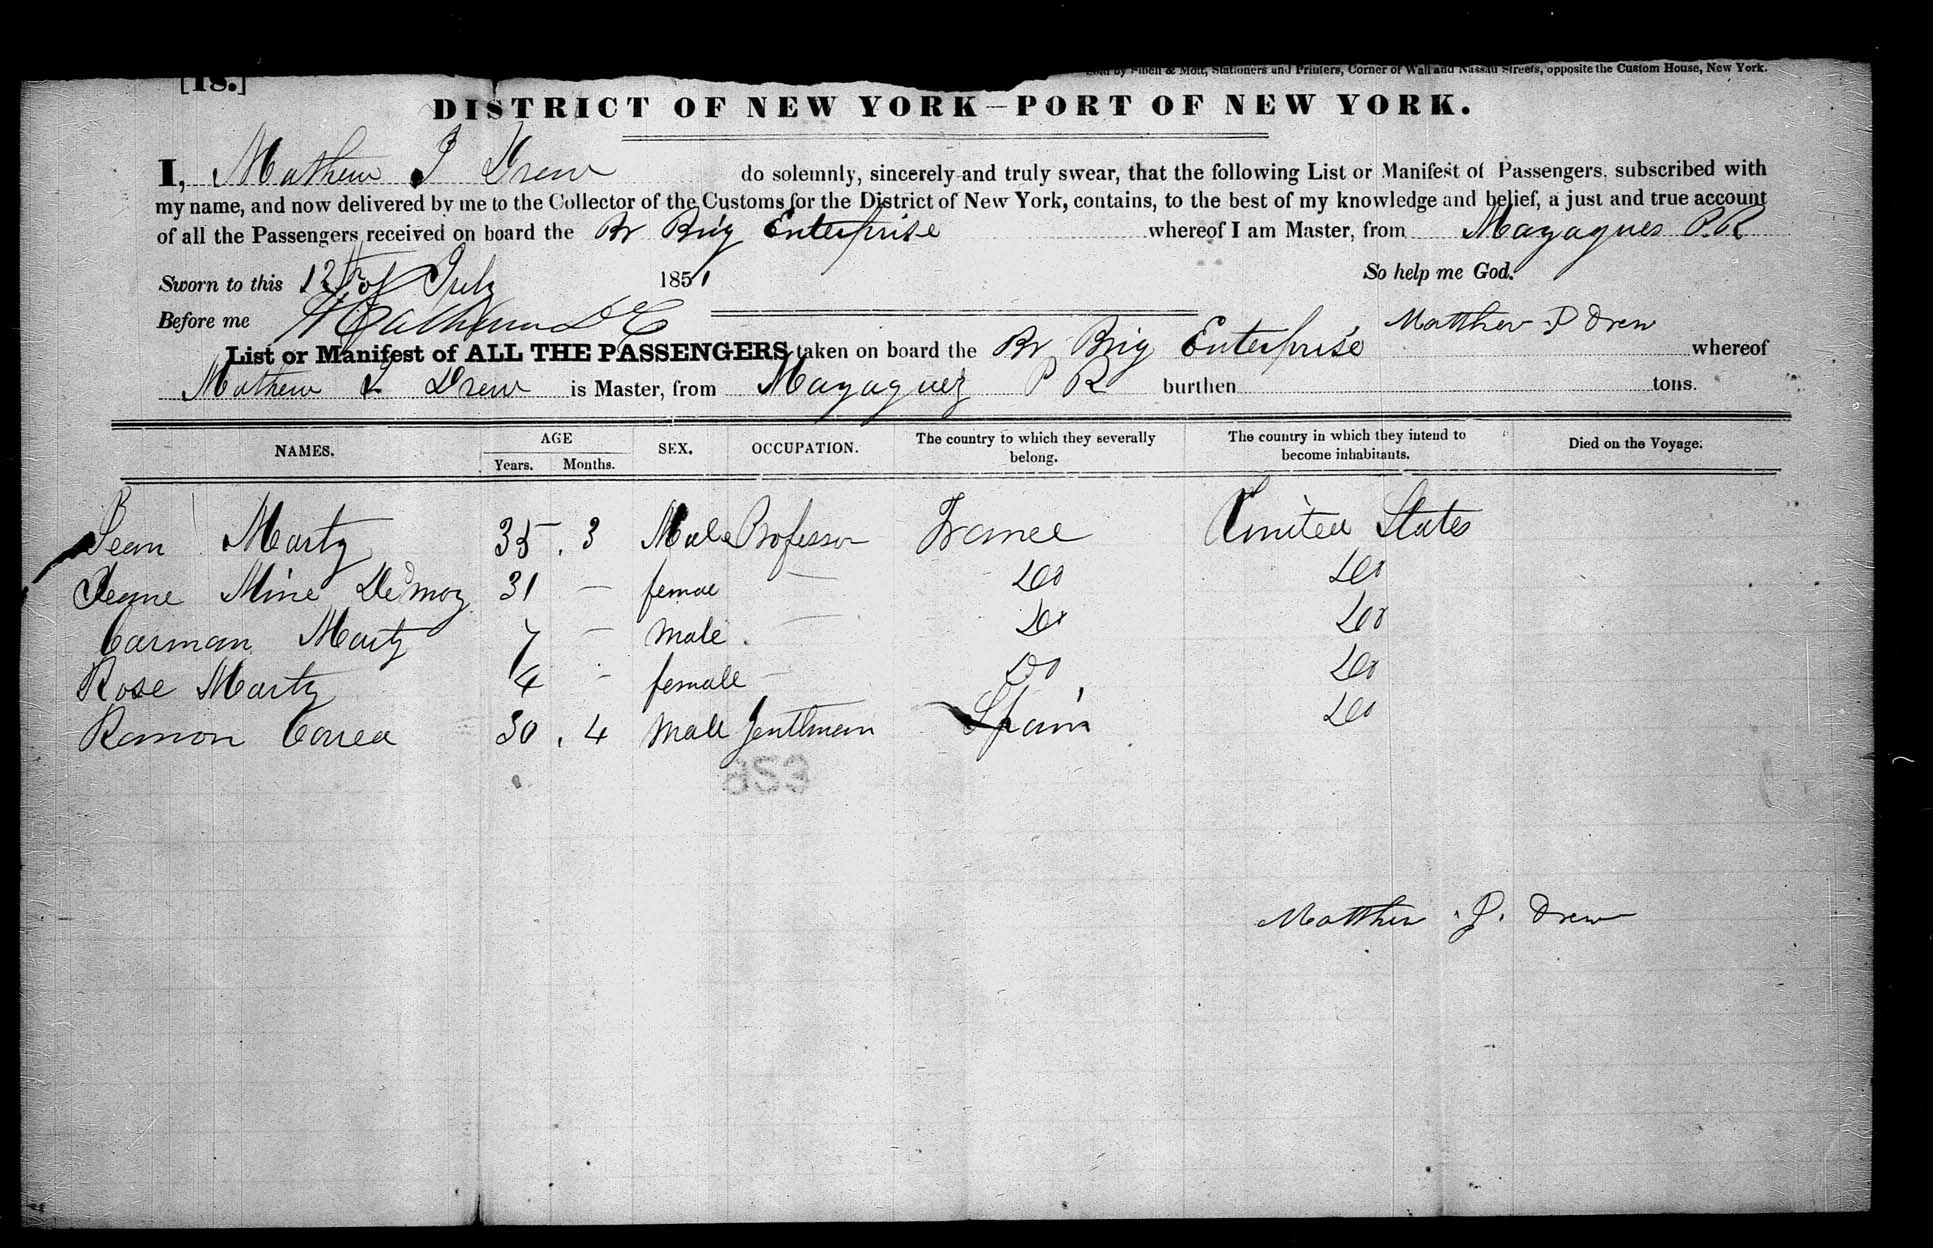 [18.]
Sold by Fibell & Mott, Stationers and Printers, Corner of Wall and Nassau Streets, opposite the Custom House, New York.
DISTRICT OF NEW YORK—PORT OF NEW YORK.
I, Mathew J Drew do solemnly, sincerely and truly swear, that the following List or Manifest of Passengers, subscribed with
my name, and now delivered by me to the Collector of the Customs for the District of New York, contains, to the best of my knowledge and belief, a just and true account
of all the Passengers received on board the Br Brig Enterprise whereof I am Master, from Mayagues P.R
Sworn to this 12th of July 1851 So help me God.
Before me
Matthew J Drew
List or Manifest of ALL THE PASSENGERS taken on board the Br Brig Enterprise whereof
Mathew J Drew is Master, from Mayaguez P R burthen tons.
NAMES. AGE Years. Months. SEX. OCCUPATION. The country to which they severally belong. The country in which they intend to become inhabitants. Died on the Voyage.
Jean Marty 35 . 3 Male Professor France United States
Jenne Mine 31 — female — Do Do
Carman Marty 7 — male — Do Do
Rose Marty 4 - female - Do Do
Ramon Correa 30 . 4 male Gentleman Spain Do
Matthew . J . Drew